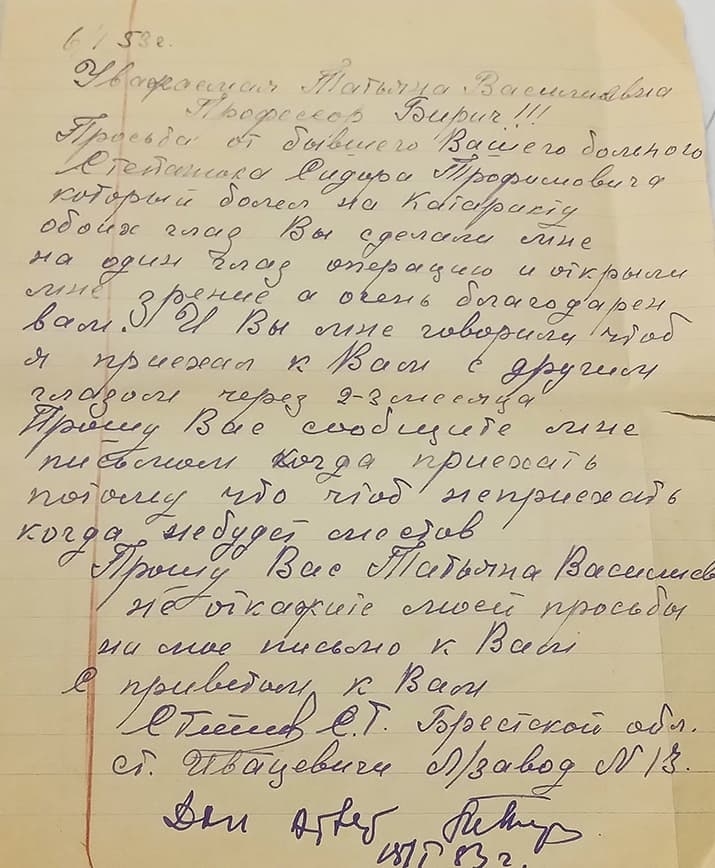 6/I 53 г.
Уважаемая Татьяна Василиевна
Профессор Бирич!!!
Просьба от бывшего Вашего больного
Степанюка Сидора Трофимовича
который болел на Катаракту
обоих глаз Вы сделали мне
на один глаз операцию и открыли
мне зрение а очень благодарен
вам. И Вы мне говорили чтоб
я приехал к Вам с другим
глазом через 2-3 месяца
Прошу Вас сообщите мне
письмом когда приехать
потому что чтоб неприехать
когда небудет местов
Прошу Вас Татьяна Василиев
не откажите моей просьбы
на мое письмо к Вам
С приветом к Вам
С.Т. Брестской обл.
ст. Ивацевичи Л/завод N 13.
Дан ответ
I 53 г.